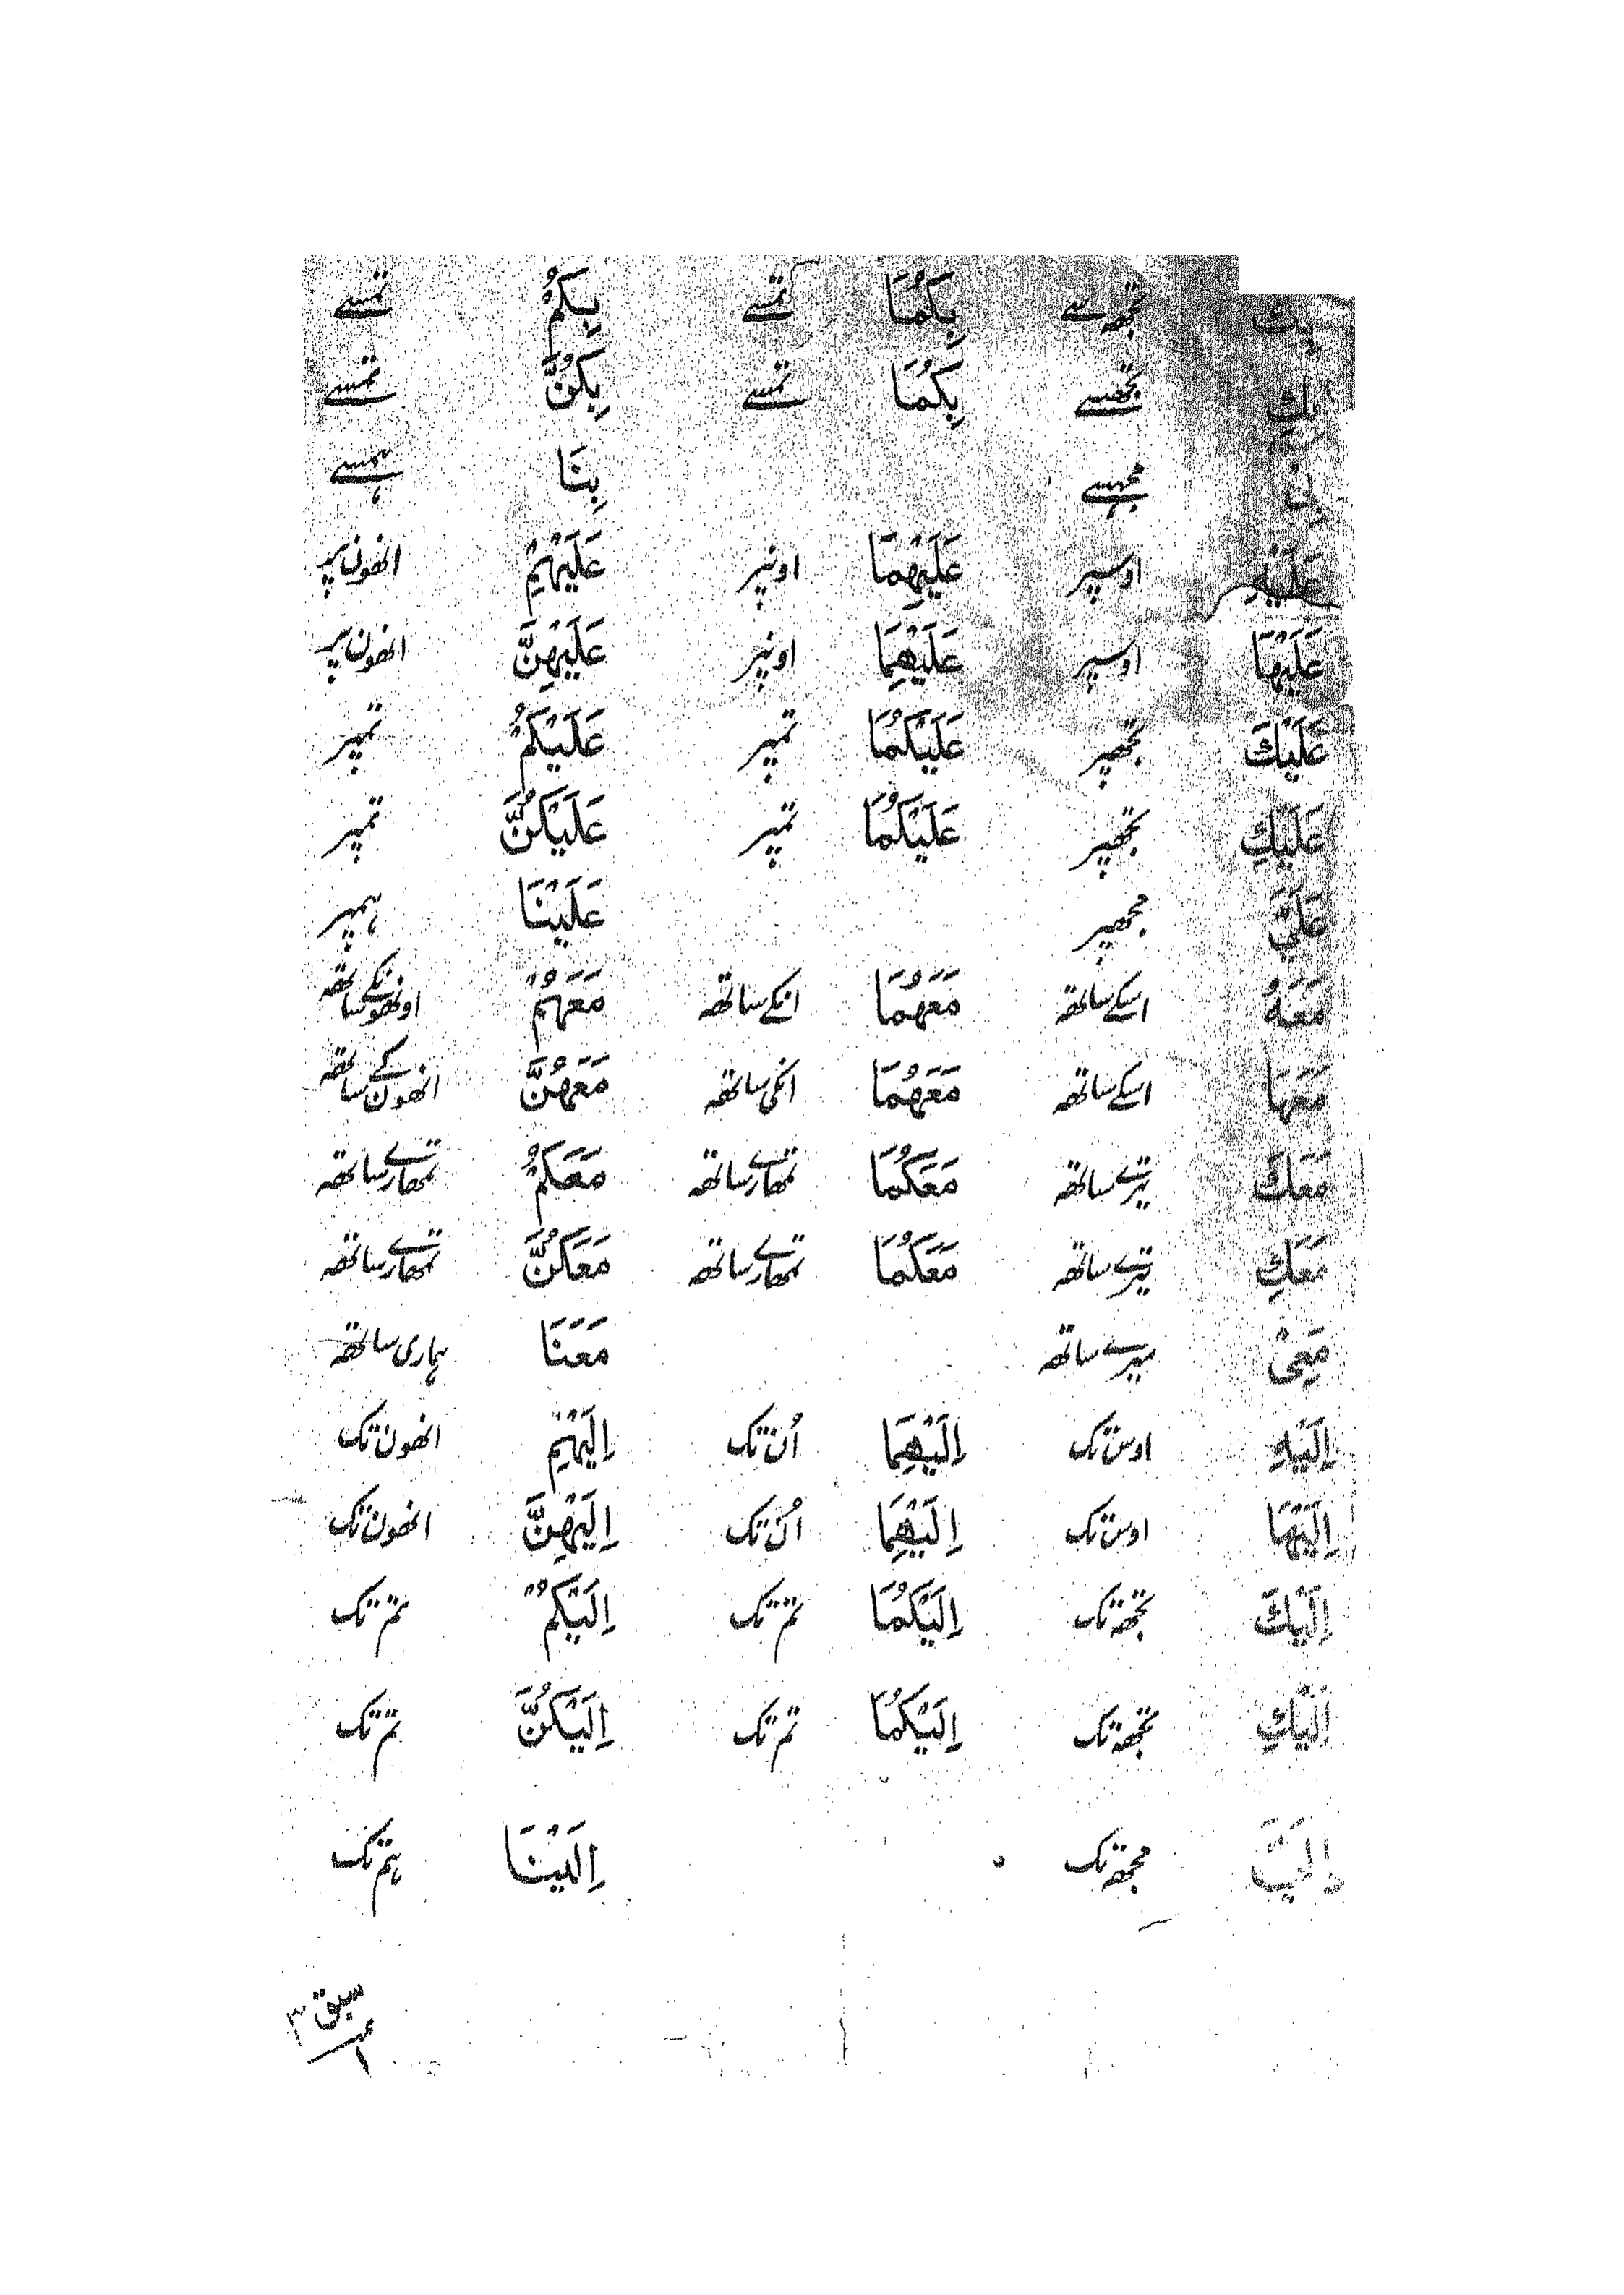 بِكَ تجھ سے بِكُمَا تمسے بِكُمْ تمسے
بِكِ تجھسے بِكُمَا تمسے بِكُنَّ تمسے
بِيْ مجھسے بِنَا ہمسے
عَلَيْهِ اوسپر عَلَيْهِمَا اونپر عَلَيْهِمْ انھون پر
عَلَيْهَا اوسپر عَلَيْهِمَا اونپر عَلَيْهِنَّ انھون پر
عَلَيْكَ تجھپر عَلَيْكُمَا تمپر عَلَيْكُمْ تمپر
عَلَيْكِ تجھپر عَلَيْكُمَا تمپر عَلَيْكُنَّ تمپر
عَلَيَّ مجھپر عَلَيْنَا ہمپر
مَعَهُ اسکے ساتھہ مَعَهُمَا انکے ساتھہ مَعَهُمْ اونھونکے ساتھہ
مَعَهَا اسکے ساتھہ مَعَهُمَا انکی ساتھہ مَعَهُنَّ انھون کے ساتھہ
مَعَكَ تیرے ساتھہ مَعَكُمَا تمھارے ساتھہ مَعَكُمْ تمھارے ساتھہ
مَعَكِ تیرے ساتھہ مَعَكُمَا تمھارے ساتھہ مَعَكُنَّ تمھارے ساتھہ
مَعِيْ میرے ساتھہ مَعَنَا ہماری ساتھہ
اِلَيْهِ اوس تک اِلَيْهِمَا اُن تک اِلَيْهِمْ انھون تک
اِلَيْهَا اوس تک اِلَيْهِمَا اُن تک اِلَيْهِنَّ انھون تک
اِلَيْكَ تجھہ تک اِلَيْكُمَا تم تک اِلَيْكُمْ تم تک
اِلَيْكِ تجھہ تک اِلَيْكُمَا تم تک اِلَيْكُنَّ تم تک
اِلَيَّ مجھہ تک اِلَيْنَا ہم تک
سبق ۳